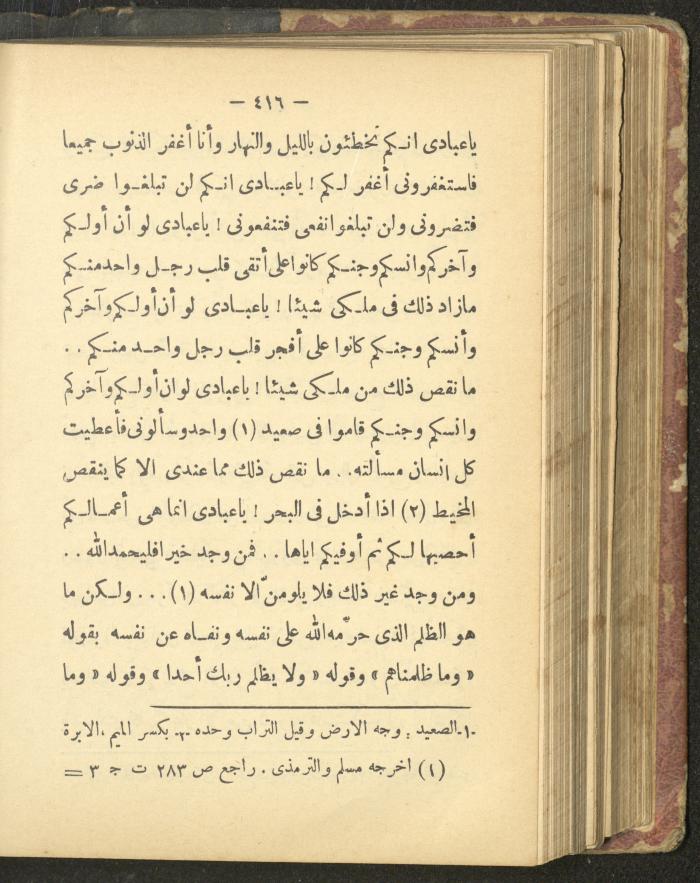 — ٤١٦ —
ياعبادى انكم تخطئون بالليل والنهار وأنا أغفر الذنوب جميعا
فاستغفرونى أغفر لكم ! ياعبادى انكم لن تبلغوا ضرى
فتضرونى ولن تبلغوا نفعى فتنفعونى ! ياعبادى لو أن أولكم
وآخركم وانسكم وجنكم كانوا على أتقى قلب رجل واحد منكم
مازاد ذلك فى ملكى شيئا ! ياعبادى لو أن أولكم وآخركم
وأنسكم وجنكم كانوا على أفجر قلب رجل واحد منكم . .
ما نقص ذلك من ملكى شيئا ! ياعبادى لو ان أولكم وآخركم
وانسكم وجنكم قاموا فى صعيد (١) واحد وسألونى فأعطيت
كل إنسان مسألته . . ما نقص ذلك مما عندى الا كما ينقص
المخيط (٢) اذا أدخل فى البحر ! ياعبادى انما هى أعمالكم
أحصيها لكم ثم أوفيكم اياها . . فمن وجد خيرا فليحمد الله . .
ومن وجد غير ذلك فلا يلومنّ الا نفسه (١) . . . ولكن ما
هو الظلم الذى حرّمه الله على نفسه ونفاه عن نفسه بقوله
« وما ظلمناهم » وقوله « ولا يظلم ربك أحدا » وقوله « وما
-١- الصعيد : وجه الارض وقيل التراب وحده -٢- بكسر الميم ، الابرة
(١) اخرجه مسلم والترمذى . راجع ص ٢٨٣ ت ج ٣ =